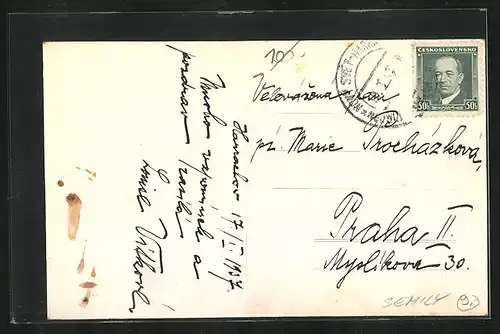 100
Harrachov 17/I. 1937.
Mnoho vzpomínek a
pozdrav zasílá
ČESKOSLOVENSKO
50h 50h
Velevážená paní
pí. Marie Procházková,
Praha II.
Myslíkova 30.
SEMILY